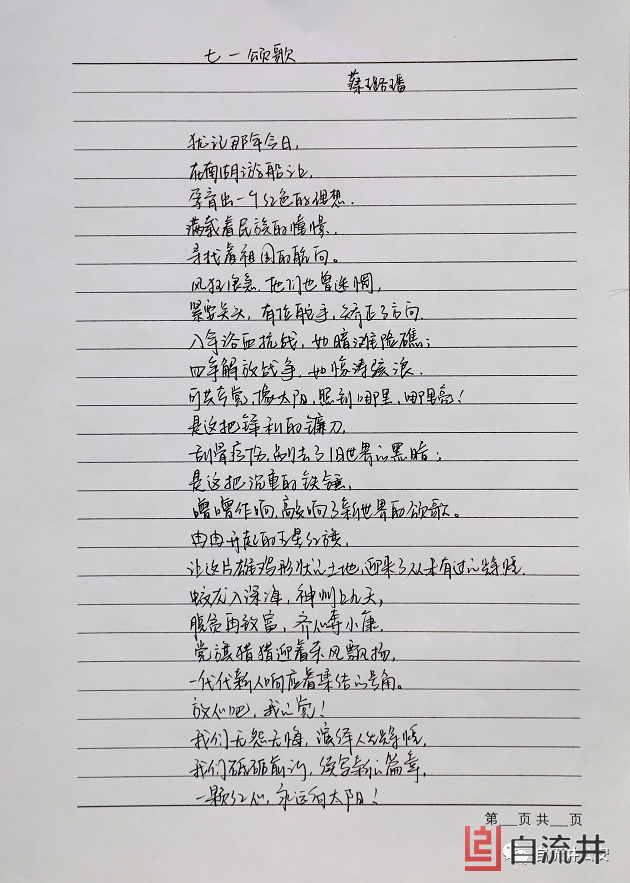 七一颂歌
蔡璐璠
犹记那年今日,
在南湖游船上,
孕育出一个红色的理想.
满载着民族的憧憬.
寻找着祖国的航向。
风狂浪急,他们也曾迷惘,
紧要关头,有位舵手,矫正了方向.
八年浴血抗战,如暗滩险礁;
四年解放战争,如惊涛骇浪.
可共产党,像太阳,照到哪里,哪里亮!
是这把锋利的镰刀,
刮骨疗伤,刮去了旧世界的黑暗;
是这把沉重的铁锤,
噌噌作响,敲响了新世界的颂歌。
冉冉升起的五星红旗,
让这片雄鸡形状的土地,迎来了从未有过的辉煌.
蛟龙入深海,神州上九天,
脱贫再致富,齐心奔小康.
党旗猎猎迎着东风飘扬,
一代代新人响应着集结的号角。
放心吧,我的党!
我们无怨无悔,演绎人生辉煌.
我们砥砺前行,续写新的篇章,
一颗红心,永远向太阳!
第__页 共__页
自流井